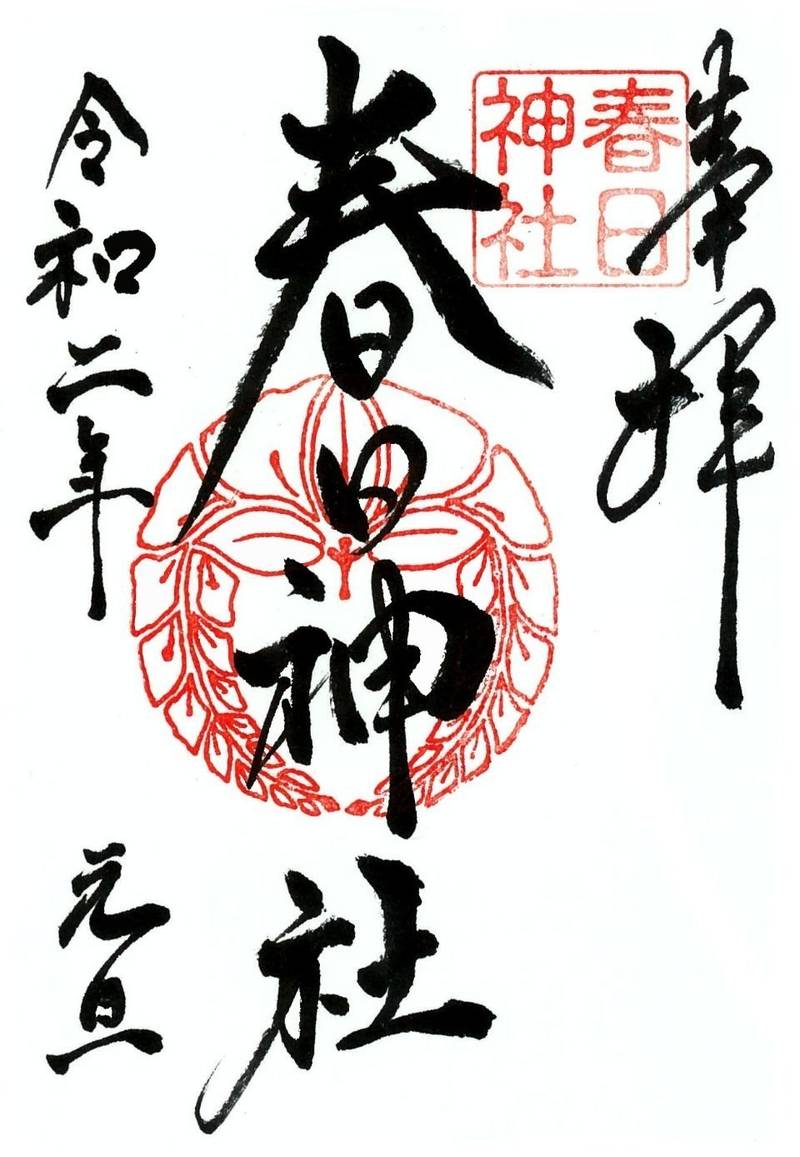 奉拝
春日神社
春日神社
令和二年 元旦